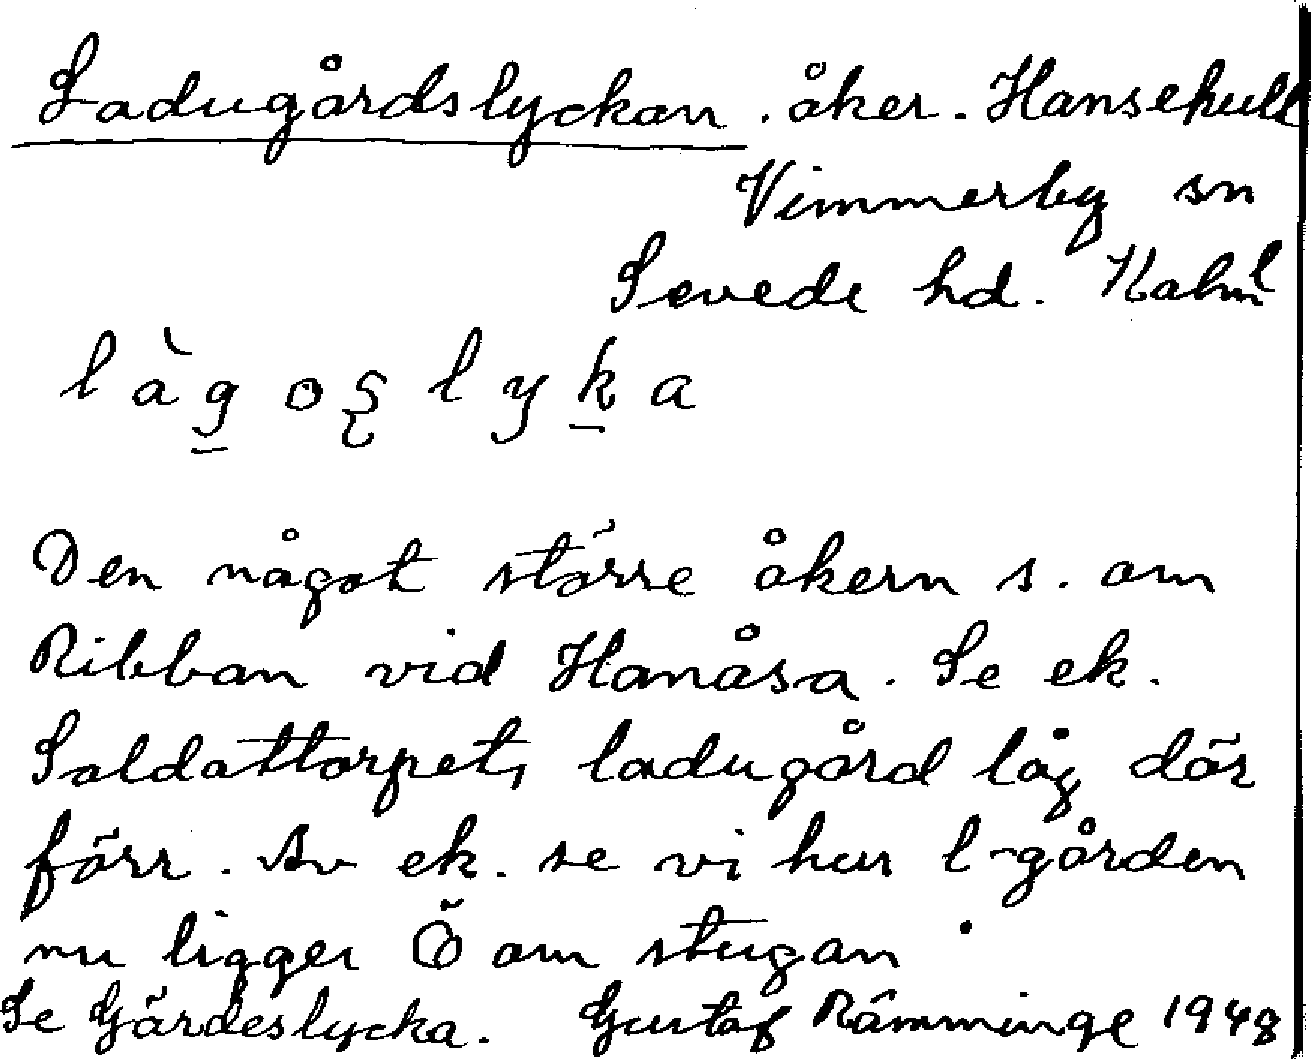 Ladugårdslyckan. åker. Hansehult
Vimmerby sn
Sevede hd. Kalm l
làg os lyka
Den något större åkern s. om
Ribban vid Hanåsa. Se ek.
Soldattorpets ladugård låg där
förr. Av ek. se vi hur l-gården
nu ligger Ö om stugan.
Se Gärdeslycka. Gustaf Rämminge 1948